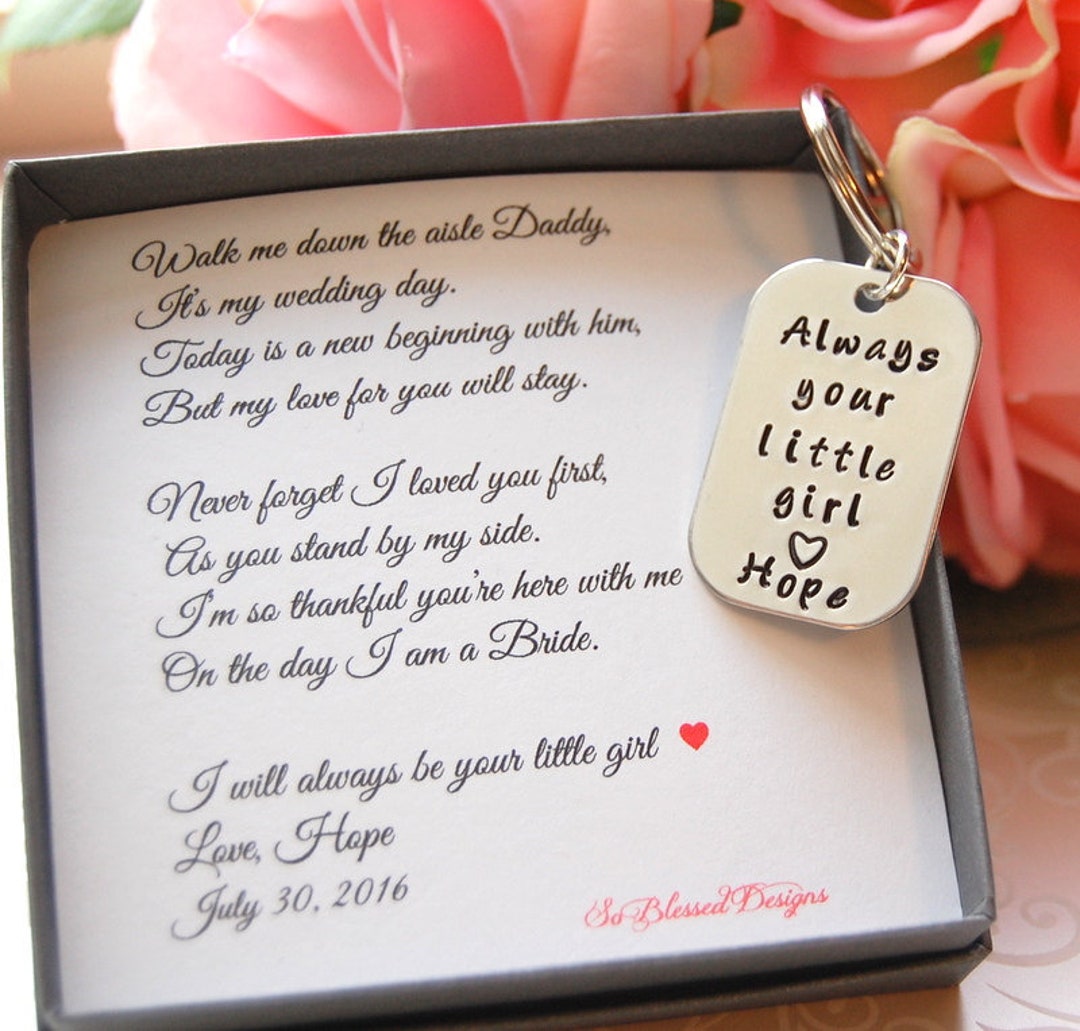 Walk me down the aisle Daddy,
It's my wedding day.
Today is a new beginning with him,
But my love for you will stay.
Never forget I loved you first,
As you stand by my side.
I'm so thankful you're here with me
On the day I am a Bride.
I will always be your little girl ♥
Love, Hope
July 30, 2016
SoBlessedDesigns
Always
your
little
girl
♡
Hope